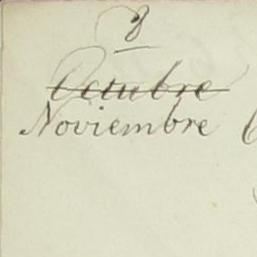 8
Octubre
Noviembre